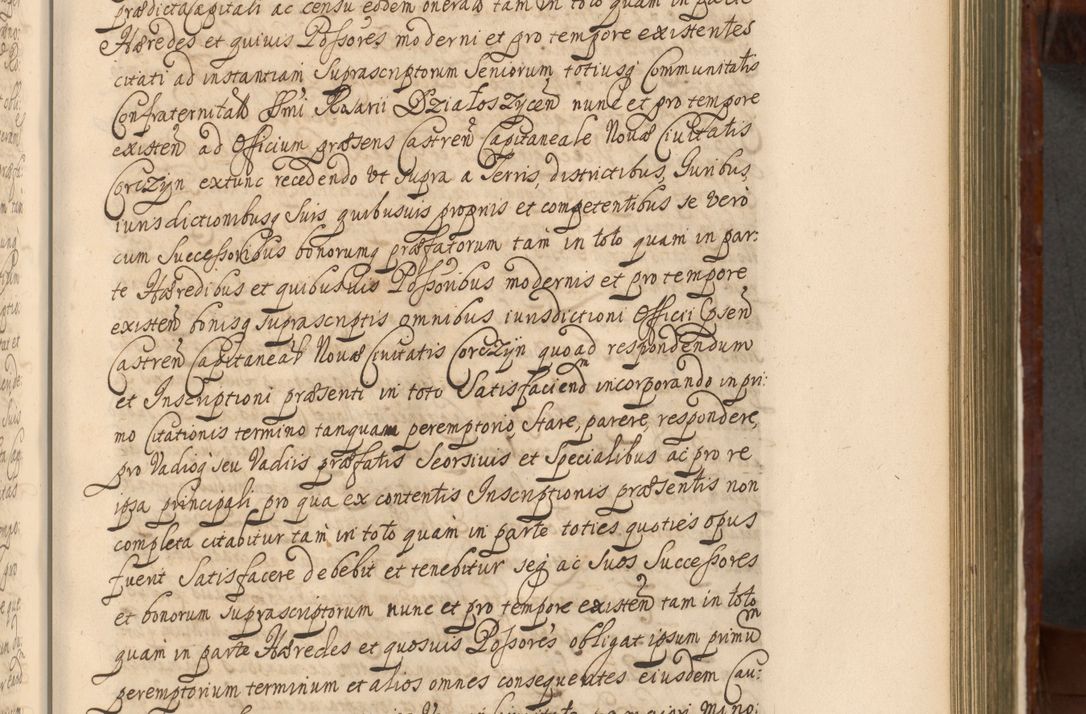 prædicta Capitali ac censu eodem onerato tam in toto quam in parte
Hæredes et quivis Possores moderni et pro tempore existentes
citati ad instantiam Suprascriptorum Seniorum totiusq Communitatis
Confraternitatis SSmi Rosarii Działoszycen nunc et pro tempore
existen ad Officium præsens Castren Capitaneale Novæ Civitatis
Corczyn extunc recedendo ut supra a Terris, districtibus, Iuribus,
iurisdictionibusq suis quibusvis propriis et competentibus se vero
cum Successoribus bonorumq præfatorum tam in toto quam in par:
te Hæredibus et quibusvis Possoribus modernis et pro tempore
existen bonisq suprascriptis omnibus iurisdictioni Officii Psen
Castren Capitaneal Novæ Civitatis Corczyn quoad respondendum
et Inscriptioni præsenti in toto Satisfaciend incorporando in pri:
mo Citationis termino tanquam peremptorio Stare, parere, respondere,
pro Vadioq seu Vadiis præfatis Seorsivis et Specialibus ac pro re
ipsa principali pro qua ex contentis Inscriptionis præsentis non
completa citabitur tam in toto quam in parte toties quoties opus
fuerit Satisfacere debebit et tenebitur seq ac suos Successores
et bonorum suprascriptorum nunc et pro tempore existen tam in toto
quam in parte Hæredes et quosvis Possores obligat ipsum primum
peremptorium terminum et alios omnes consequentes eiusdem Cau: